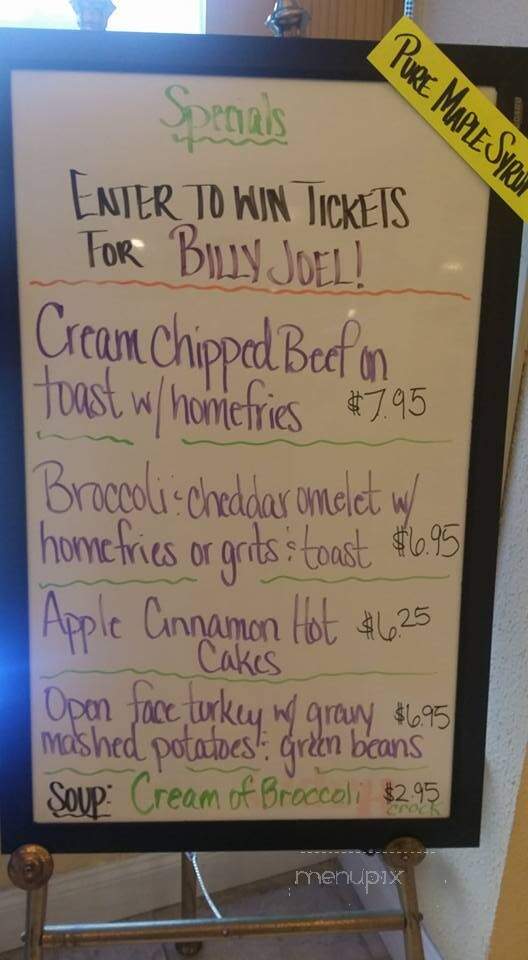 Specials
PURE MAPLE SYRUP
ENTER TO WIN TICKETS
FOR BILLY JOEL!
Cream Chipped Beef on
toast w/ homefries $7.95
Broccoli & cheddar omelet w/
homefries or grits & toast $6.95
Apple Cinnamon Hot $6.25
Cakes
Open face turkey w/ gravy $6.95
mashed potatoes & green beans
SOUP: Cream of Broccoli $2.95
crock
menupix